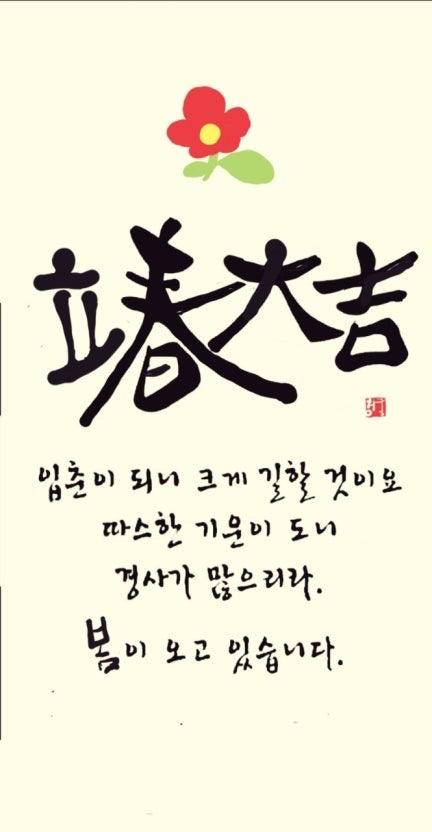 立春大吉
입춘이 되니 크게 길할 것이요
따스한 기운이 도니
경사가 많으리라.
봄이 오고 있습니다.